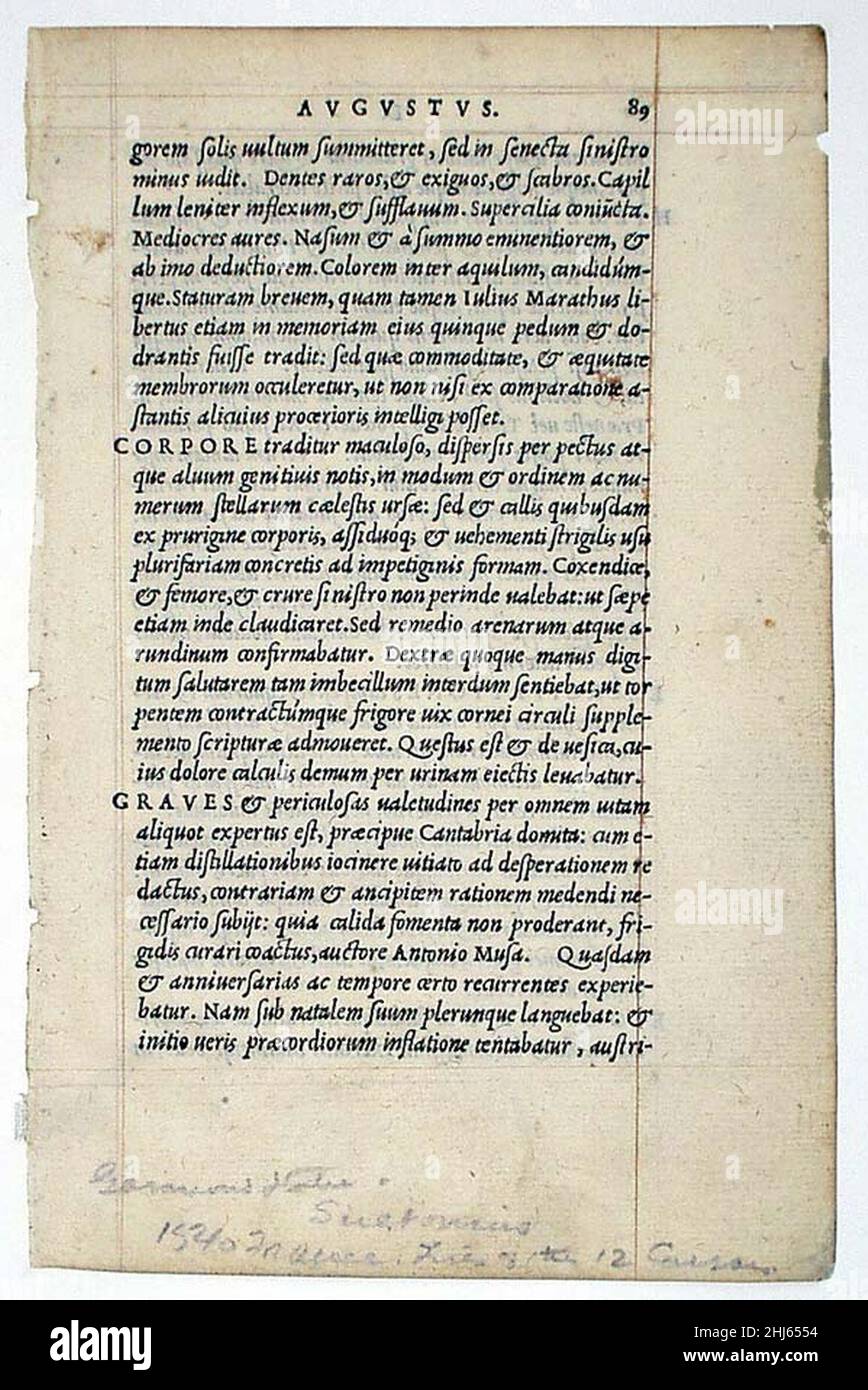 AVGVSTVS. 89
gorem ſolis uultum ſummitteret, ſed in ſenecta ſiniſtro
minus uidit. Dentes raros, & exiguos, & ſcabros. Capil
lum leniter inflexum, & ſufflauum. Supercilia coniũcta.
Mediocres aures. Naſum & à ſummo eminentiorem, &
ab imo deductiorem. Colorem inter aquilum, candidúm-
que. Staturam breuem, quam tamen Iulius Marathus li-
bertus etiam in memoriam eius quinque pedum & do-
drantis fuiſſe tradit: ſed quæ commoditate, & æquitate
membrorum occuleretur, ut non niſi ex comparatione a-
ſtantis alicuius procerioris intelligi poſſet.
CORPORE traditur maculoſo, diſperſis per pectus at-
que aluum genitiuis notis, in modum & ordinem ac nu-
merum ſtellarum cæleſtis urſæ: ſed & callis quibuſdam
ex prurigine corporis, aſſiduoq; & uehementi ſtrigilis uſu
plurifariam concretis ad impetiginis formam. Coxendice,
& femore, & crure ſiniſtro non perinde ualebat: ut ſæpe
etiam inde claudicaret. Sed remedio arenarum atque a-
rundinum confirmabatur. Dextræ quoque manus digi-
tum ſalutarem tam imbecillum interdum ſentiebat, ut tor
pentem contractúmque frigore uix cornei circuli ſupple-
mento ſcripturæ admoueret. Queſtus eſt & de ueſica, cu-
ius dolore calculis demum per urinam eiectis leuabatur.
GRAVES & periculoſas ualetudines per omnem uitam
aliquot expertus eſt, præcipue Cantabria domita: cum e-
tiam diſtillationibus iocinere uitiato ad deſperationem re
dactus, contrariam & ancipitem rationem medendi ne-
ceſſario ſubijt: quia calida fomenta non proderant, fri-
gidis curari coactus, auctore Antonio Muſa. Quaſdam
& anniuerſarias ac tempore certo recurrentes experie-
batur. Nam ſub natalem ſuum plerunque languebat: &
initio ueris præcordiorum inflatione tentabatur, auſtri-
Suetonius
1540 France. 12
alamy
alamy
alamy
Image ID: 2HJ6554
www.alamy.com